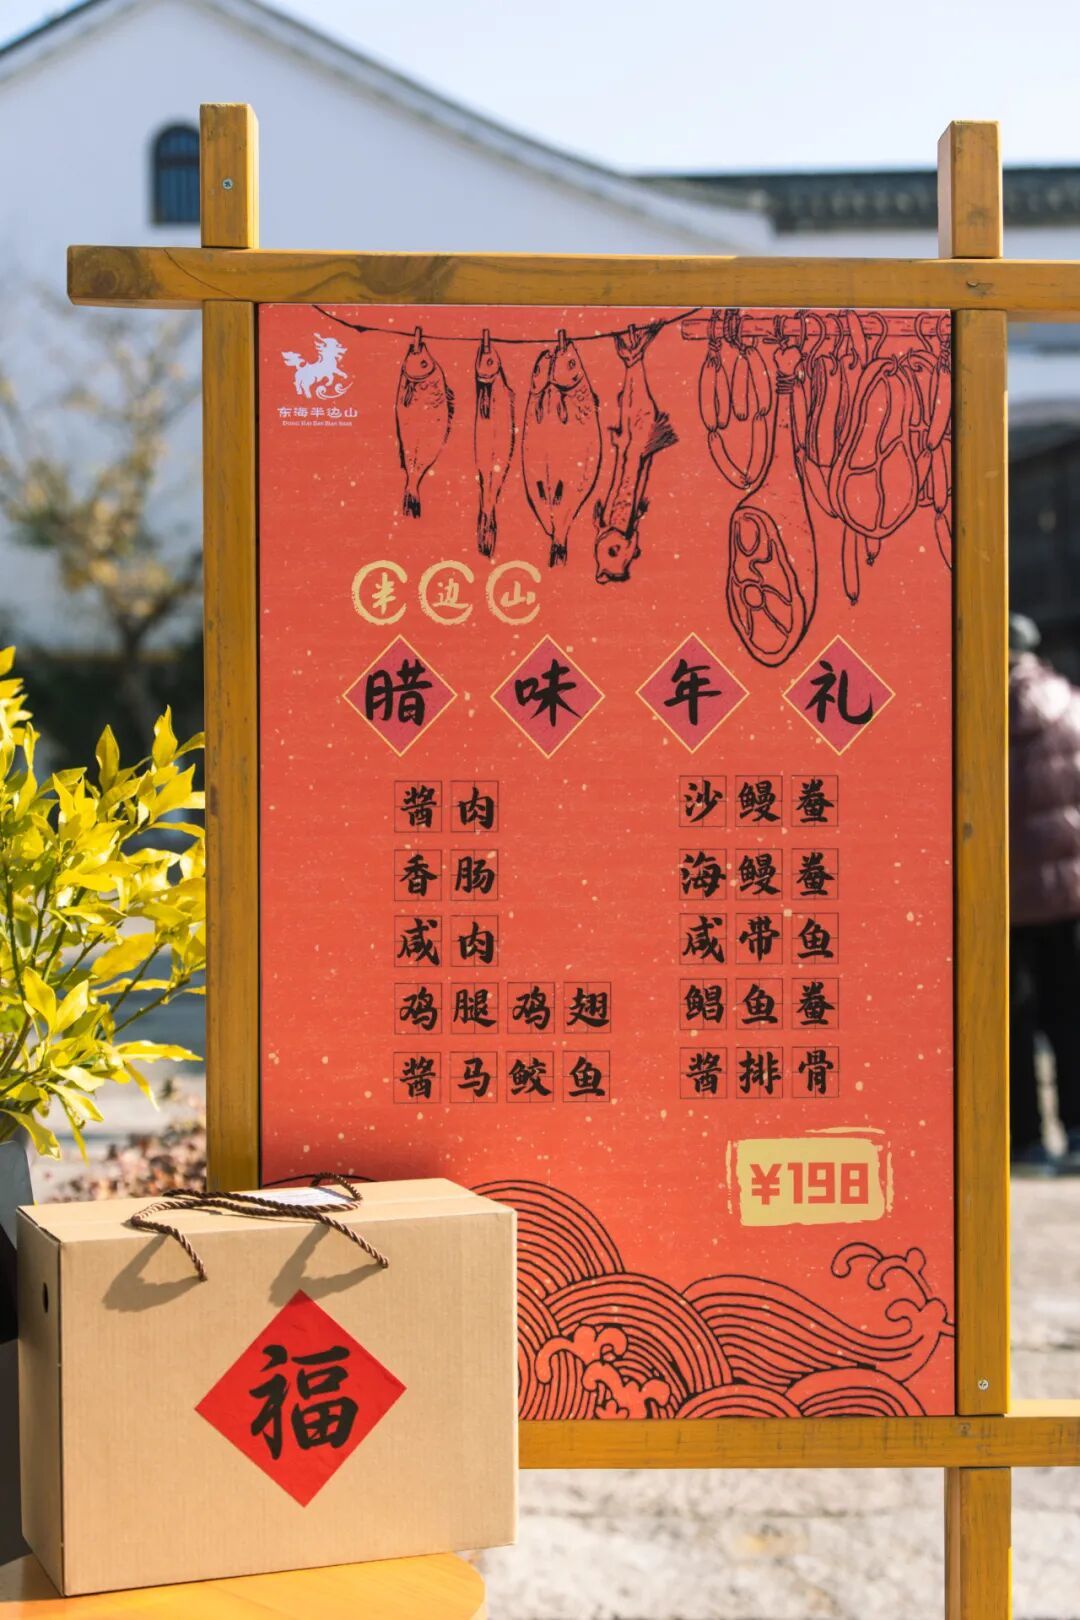 东海半边山
DONG HAI BAN BIAN SHAN
半边山
腊味年礼
酱肉
香肠
咸肉
鸡腿鸡翅
酱马鲛鱼
沙鳗鲞
海鳗鲞
咸带鱼
鲳鱼鲞
酱排骨
¥198
福